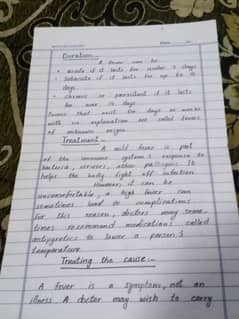 Duration :-
A fever can be:-
• acute if it lasts for under 7 days
• subacute if it lasts for up to 14
days
• chronic or persistent if it lasts
for over 14 days
fevers that exist for days or weeks
with no explanation are called fevers
of unknown origin.
Treatment :-
A mild fever is part
of the immune system's response to
bacteria, viruses, other pathogens. It
helps the body fight off infection
However, it can be
uncomfortable, a high fever can
sometimes lead to complications
for this reason, doctors may some-
times recommend medications called
antipyretics to lower a person's
temperature
Treating the cause :-
A fever is a symptom, not an
illness. A doctor may wish to carry